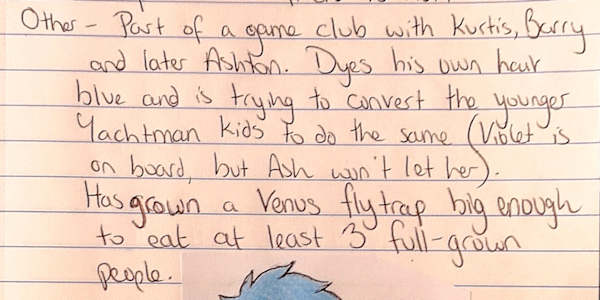 Other - Part of a game club with Kurtis, Barry
and later Ashton. Dyes his own hair
blue and is trying to convert the younger
Yachtman kids to do the same (Violet is
on board, but Ash won't let her).
Has grown a Venus flytrap big enough
to eat at least 3 full-grown
people.